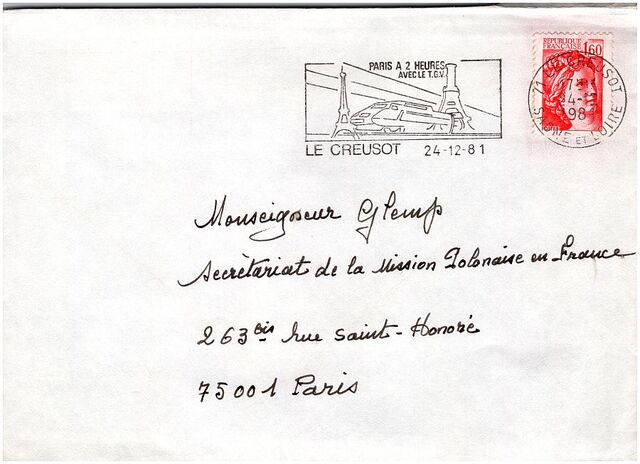 PARIS A 2 HEURES
AVEC LE T.G.V.
REPUBLIQUE
FRANÇAISE
1,60
71 LE CREUSOT
SAONE ET LOIRE
LE CREUSOT 24-12-81
Monseigneur Glemp
Secrètariat de la Mission Polonaise en France
263 bis rue Saint-Honoré
75001 Paris